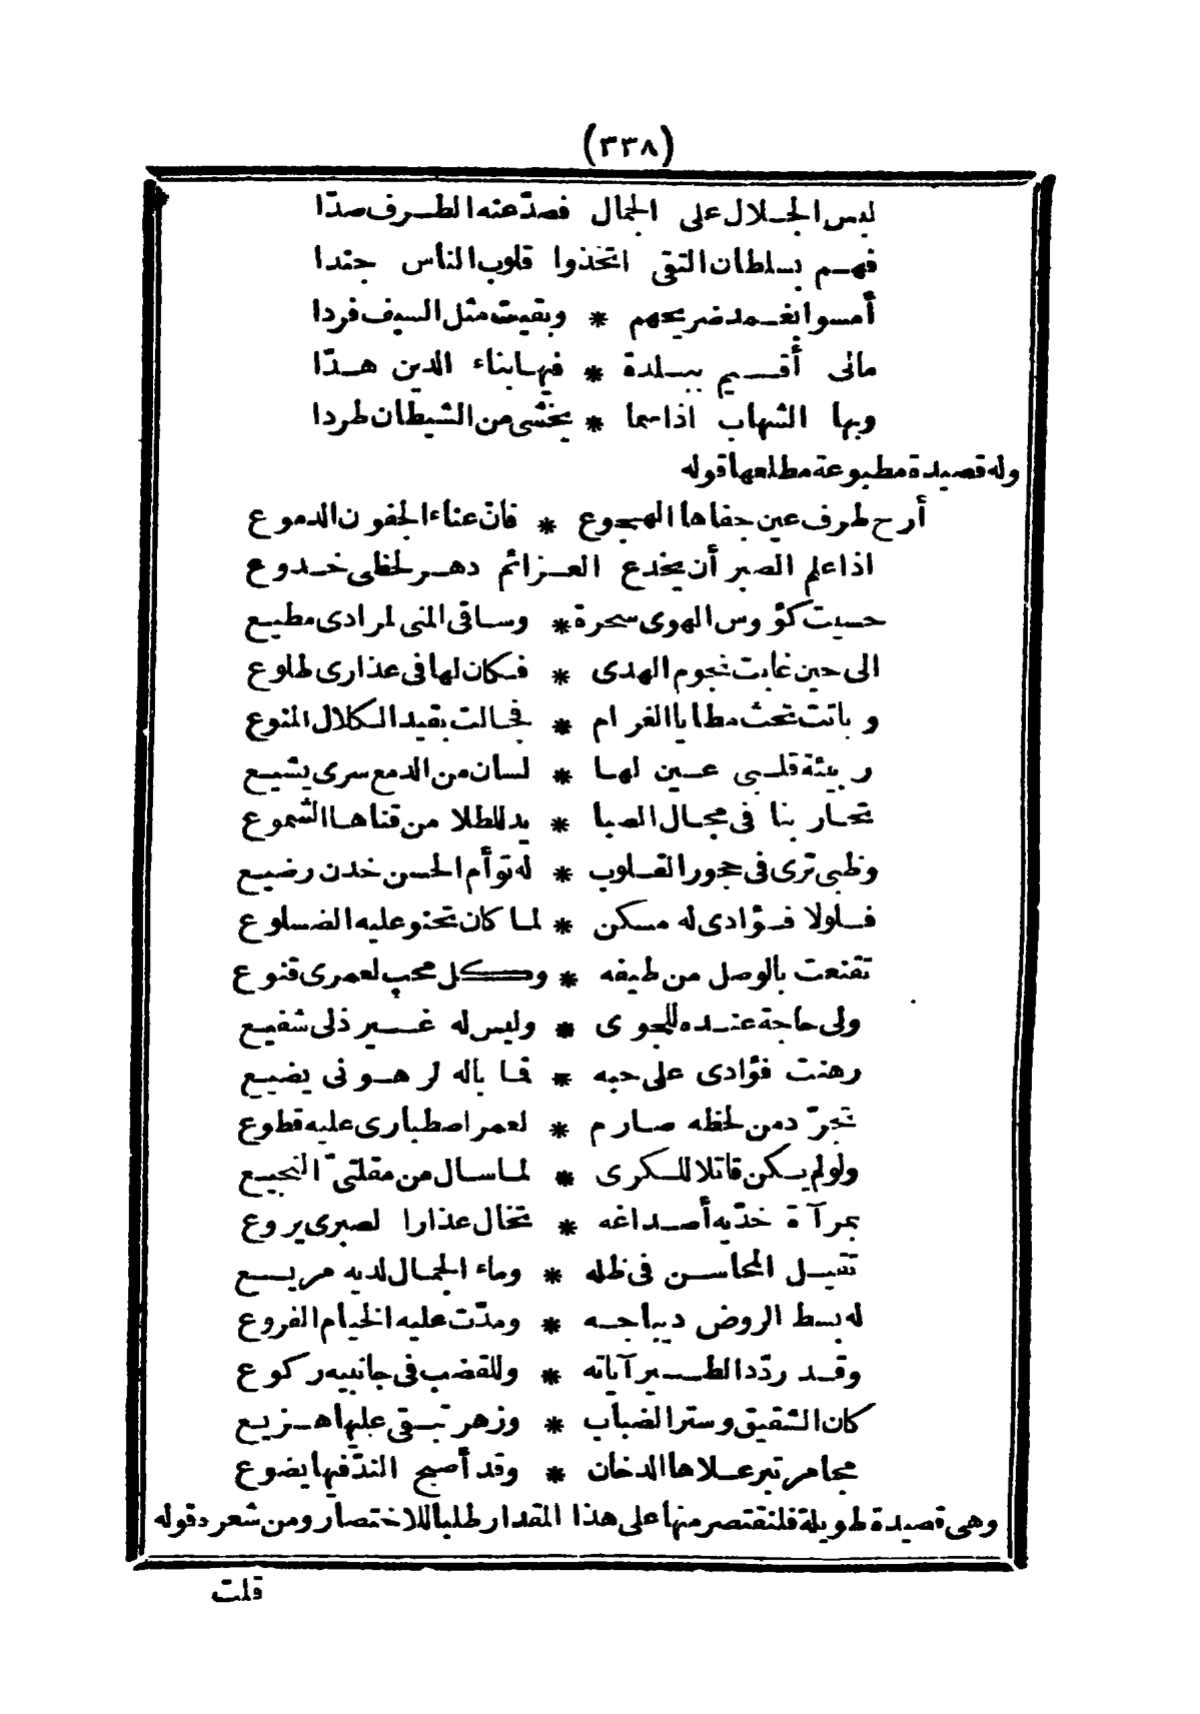 (٣٣٨)
لبس الجلال على الجمال فصدّ عنه الطرف صدّا
فهم بسلطان التقى اتخذوا قلوب الناس جندا
أمسوا بغمد ضريحهم * وبقيت مثل السيف فردا
مالى أقيم ببلدة * فيها بناء الدين هدّا
وبها الشهاب اذا سما * يخشى من الشيطان طردا
وله قصيدة مطبوعة مطلعها قوله
أرح طرف عين جفاها الهجوع * فان عناء الجفون الدموع
اذا علم الصبر أن يخدع العزائم دهر لحظى خدوع
حسيت كؤوس الهوى سحرة * وساقى المنى لمرادى مطيع
الى حين غابت نجوم الهدى * فكان لها فى عذارى طلوع
وباتت تحث مطايا الغرام * فحالت بقيد الكلال المنوع
ربيئة قلبى عين لها * لسان من الدمع سرى يشيع
تحار بنا فى مجال الصبا * يد للطلا من قناها الشموع
وظبى ترى فى حجور القلوب * له توأم الحسن خدن رضيع
فلولا فؤادى له مسكن * لما كان تحنو عليه الضلوع
تقنعت بالوصل من طيفه * وكل محب لعمرى قنوع
ولى حاجة عنده للجوى * وليس له غير ذلى شفيع
رهنت فؤادى على حبه * فما باله لرهونى يضيع
تجرّد من لحظه صارم * لعمر اصطبارى عليه قطوع
ولو لم يكن قاتلا للكرى * لما سال من مقلتىّ النجيع
بمرآة خدّيه أصداغه * تخال عذارا لصبرى يروع
تقيل المحاسن فى ظله * وماء الجمال لديه مريع
له بسط الروض ديباجه * ومدّت عليه الخيام الفروع
وقد ردّد الطير آياته * وللقضب فى جانبيه ركوع
كان الشقيق وستر الضباب * وزهر تبقى عليها هزيع
مجامر تبر علاها الدخان * وقد أصبح الندّ فيها يضوع
وهى قصيدة طويلة فلنقتصر منها على هذا المقدار طلبا للاختصار ومن شعره قوله
قلت